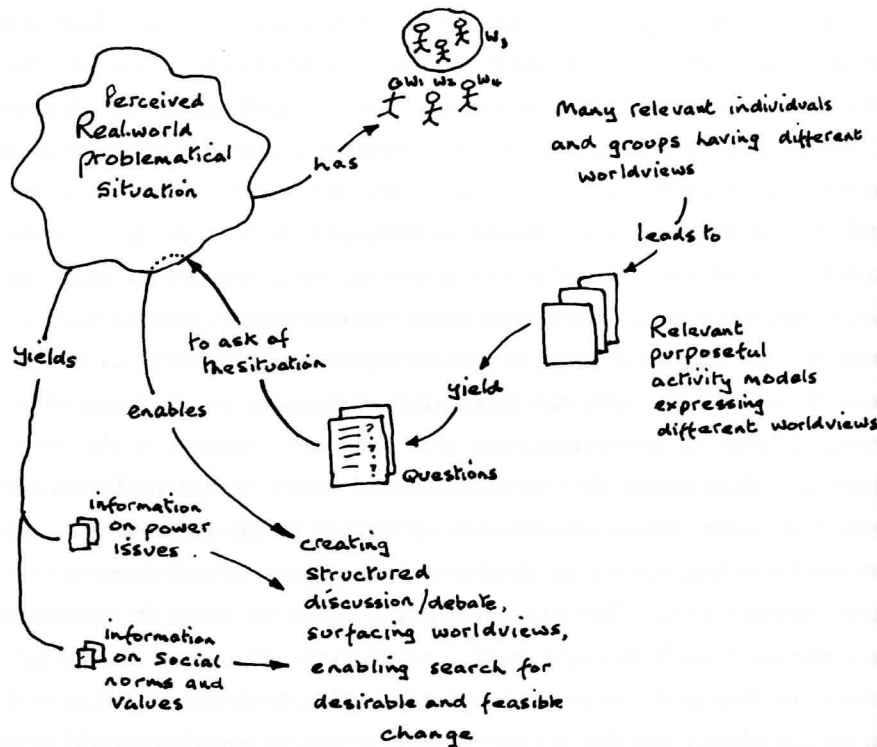 Perceived
Real-world
problematical
Situation
has
W1
W2
W3
W4
Many relevant individuals
and groups having different
worldviews
leads to
Relevant
purposeful
activity models
expressing
different worldviews
yield
Questions
?
?
?
?
to ask of
the situation
yields
enables
information
on power
issues
information
on social
norms and
values
creating
structured
discussion/debate,
surfacing worldviews,
enabling search for
desirable and feasible
change